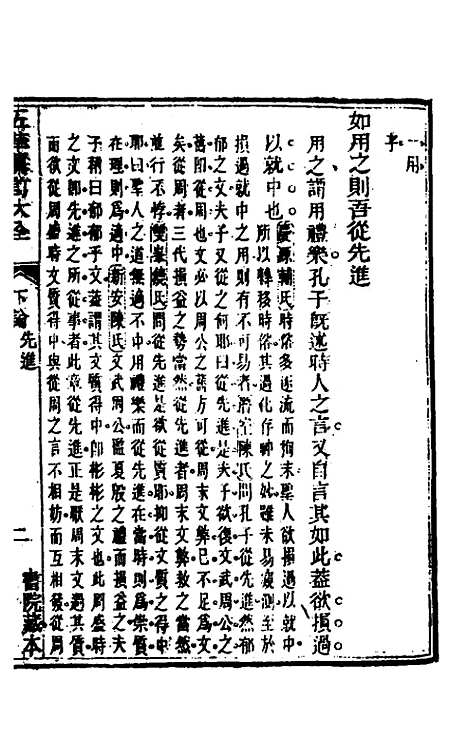 一用
字
如用之則吾從先進
用之謂用禮樂孔子旣述時人之言又自言其如此蓋欲損過
以就中也
氏時俗多逐流而徇末聖人欲損過以就中
所以轉移時俗其過化存神之妙雖未易窺測至於
損過就中之用則有不可易者潛室陳氏問孔子從先進然郁
郁之文夫子又從之何耶曰從先進是夫子欲復文武周公之
舊即從周之文必以周公之舊方可從周末文弊已不足爲文
矣從周者三代損益之勢當然從先進者周末文弊救之當然
並行不悖雙峯饒氏問從先進是欲從質耶抑從文質之得中
耶曰聖人之道無過不中用禮樂而欲從先進在當時則爲崇質
在理則爲適中新安陳氏文武周公監夏殷之禮而損益之夫
子稱曰郁郁乎文哉謂其文質得中即彬彬之文也此周盛時
之文即先進之所從事者此章從先進正是厭周末文過其質
而欲從周盛時文質得中與從周之言不相妨而互相發從周
大全
下論
先進
二
書院藏本